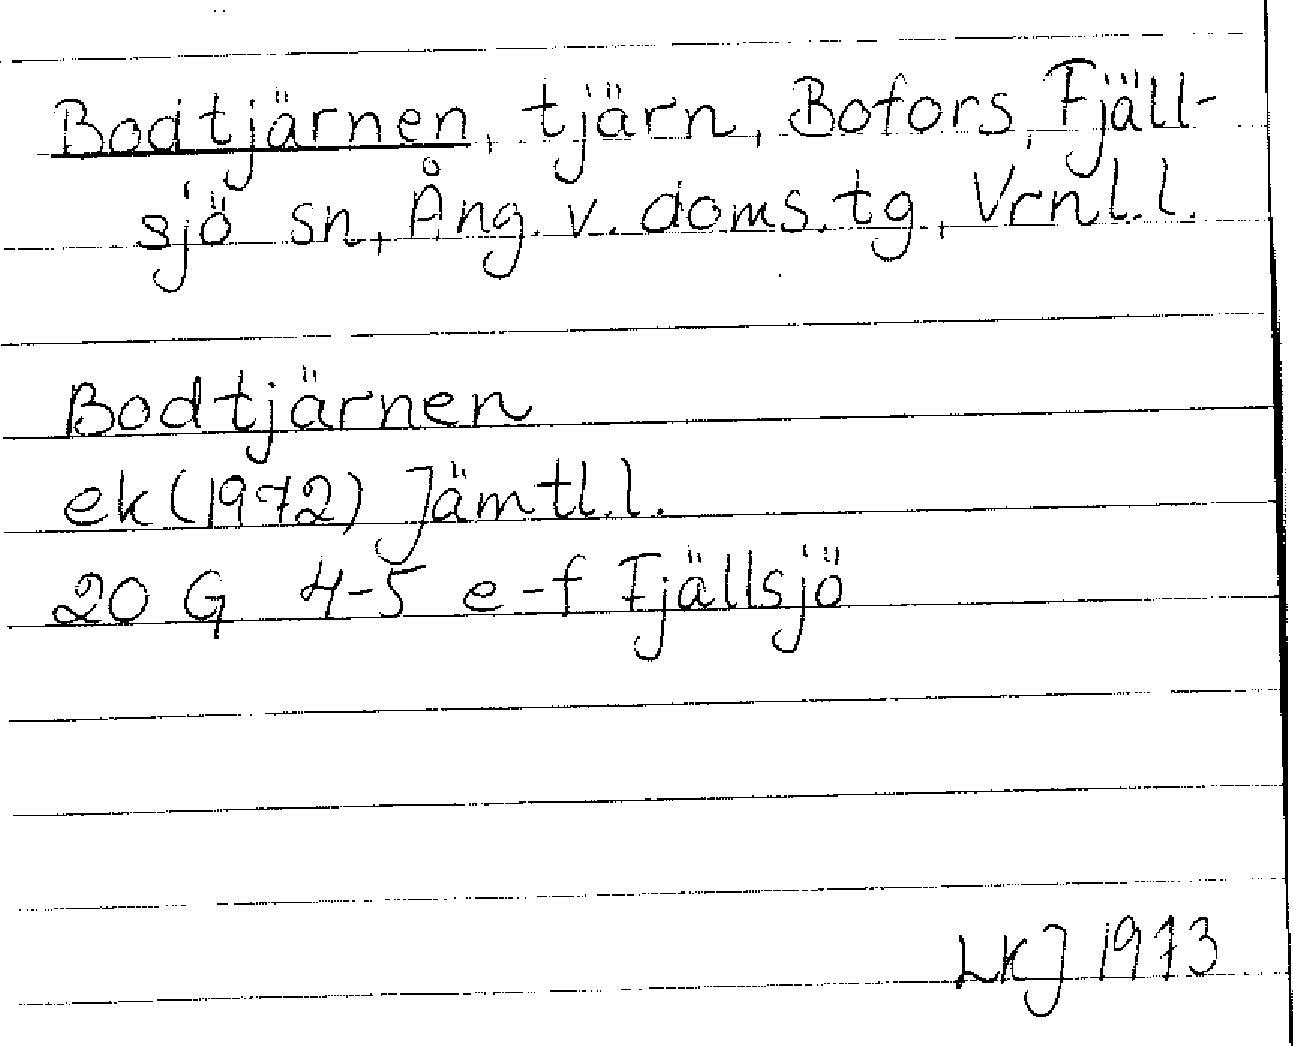 Bodtjärnen, tjärn, Bofors, Fjäll-
sjö sn, Ång. v. doms. tg, Vrnl.l.
Bodtjärnen
ek (1972) Jämtl.l.
20 G 4-5 e-f Fjällsjö
LKJ 1973